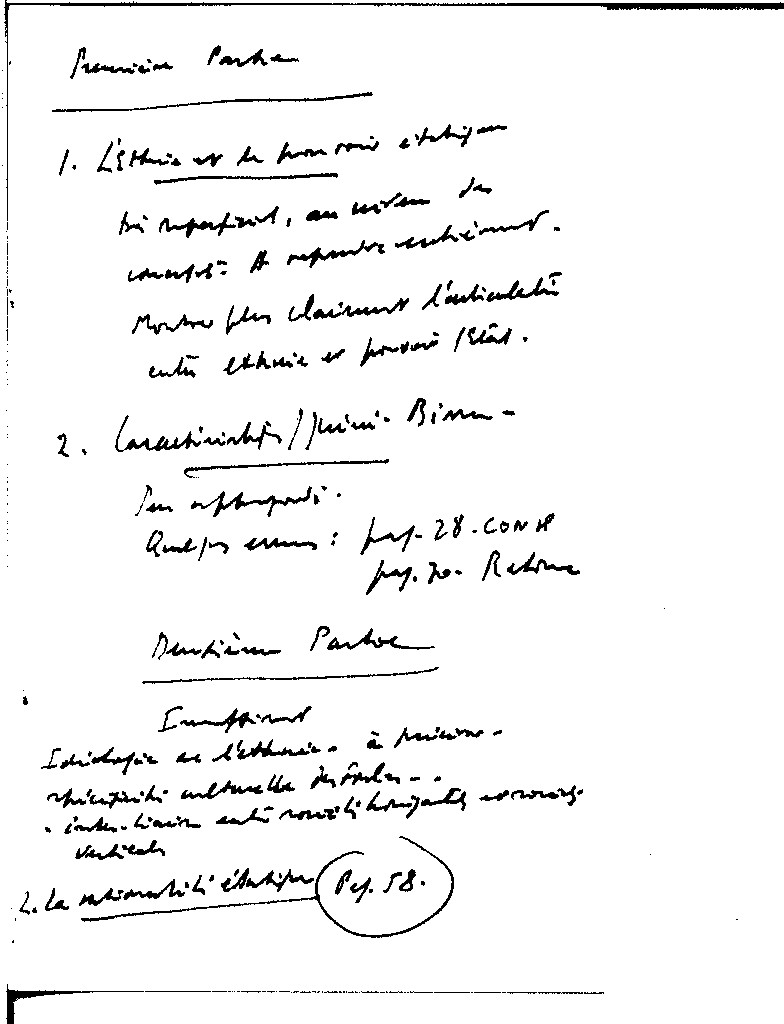 Première Partie
1. L'Ethnie et le pouvoir étatique
Très superficiel, au niveau des
concepts. A reprendre entièrement.
Montrer plus clairement l'articulation
entre ethnie et pouvoir / Etat.
2. Caractéristiques Guinée Bissau
Peu approfondi.
Quelques erreurs : pag. 28 - CONCP
pag. 70 -
Deuxième Partie
Insuffisant
Idéologie de l'ethnie - à préciser -
spécificité culturelle des Peules - .
- entre sociétés horizontales et sociétés
verticales
2. La rationalité étatique Pag. 58.